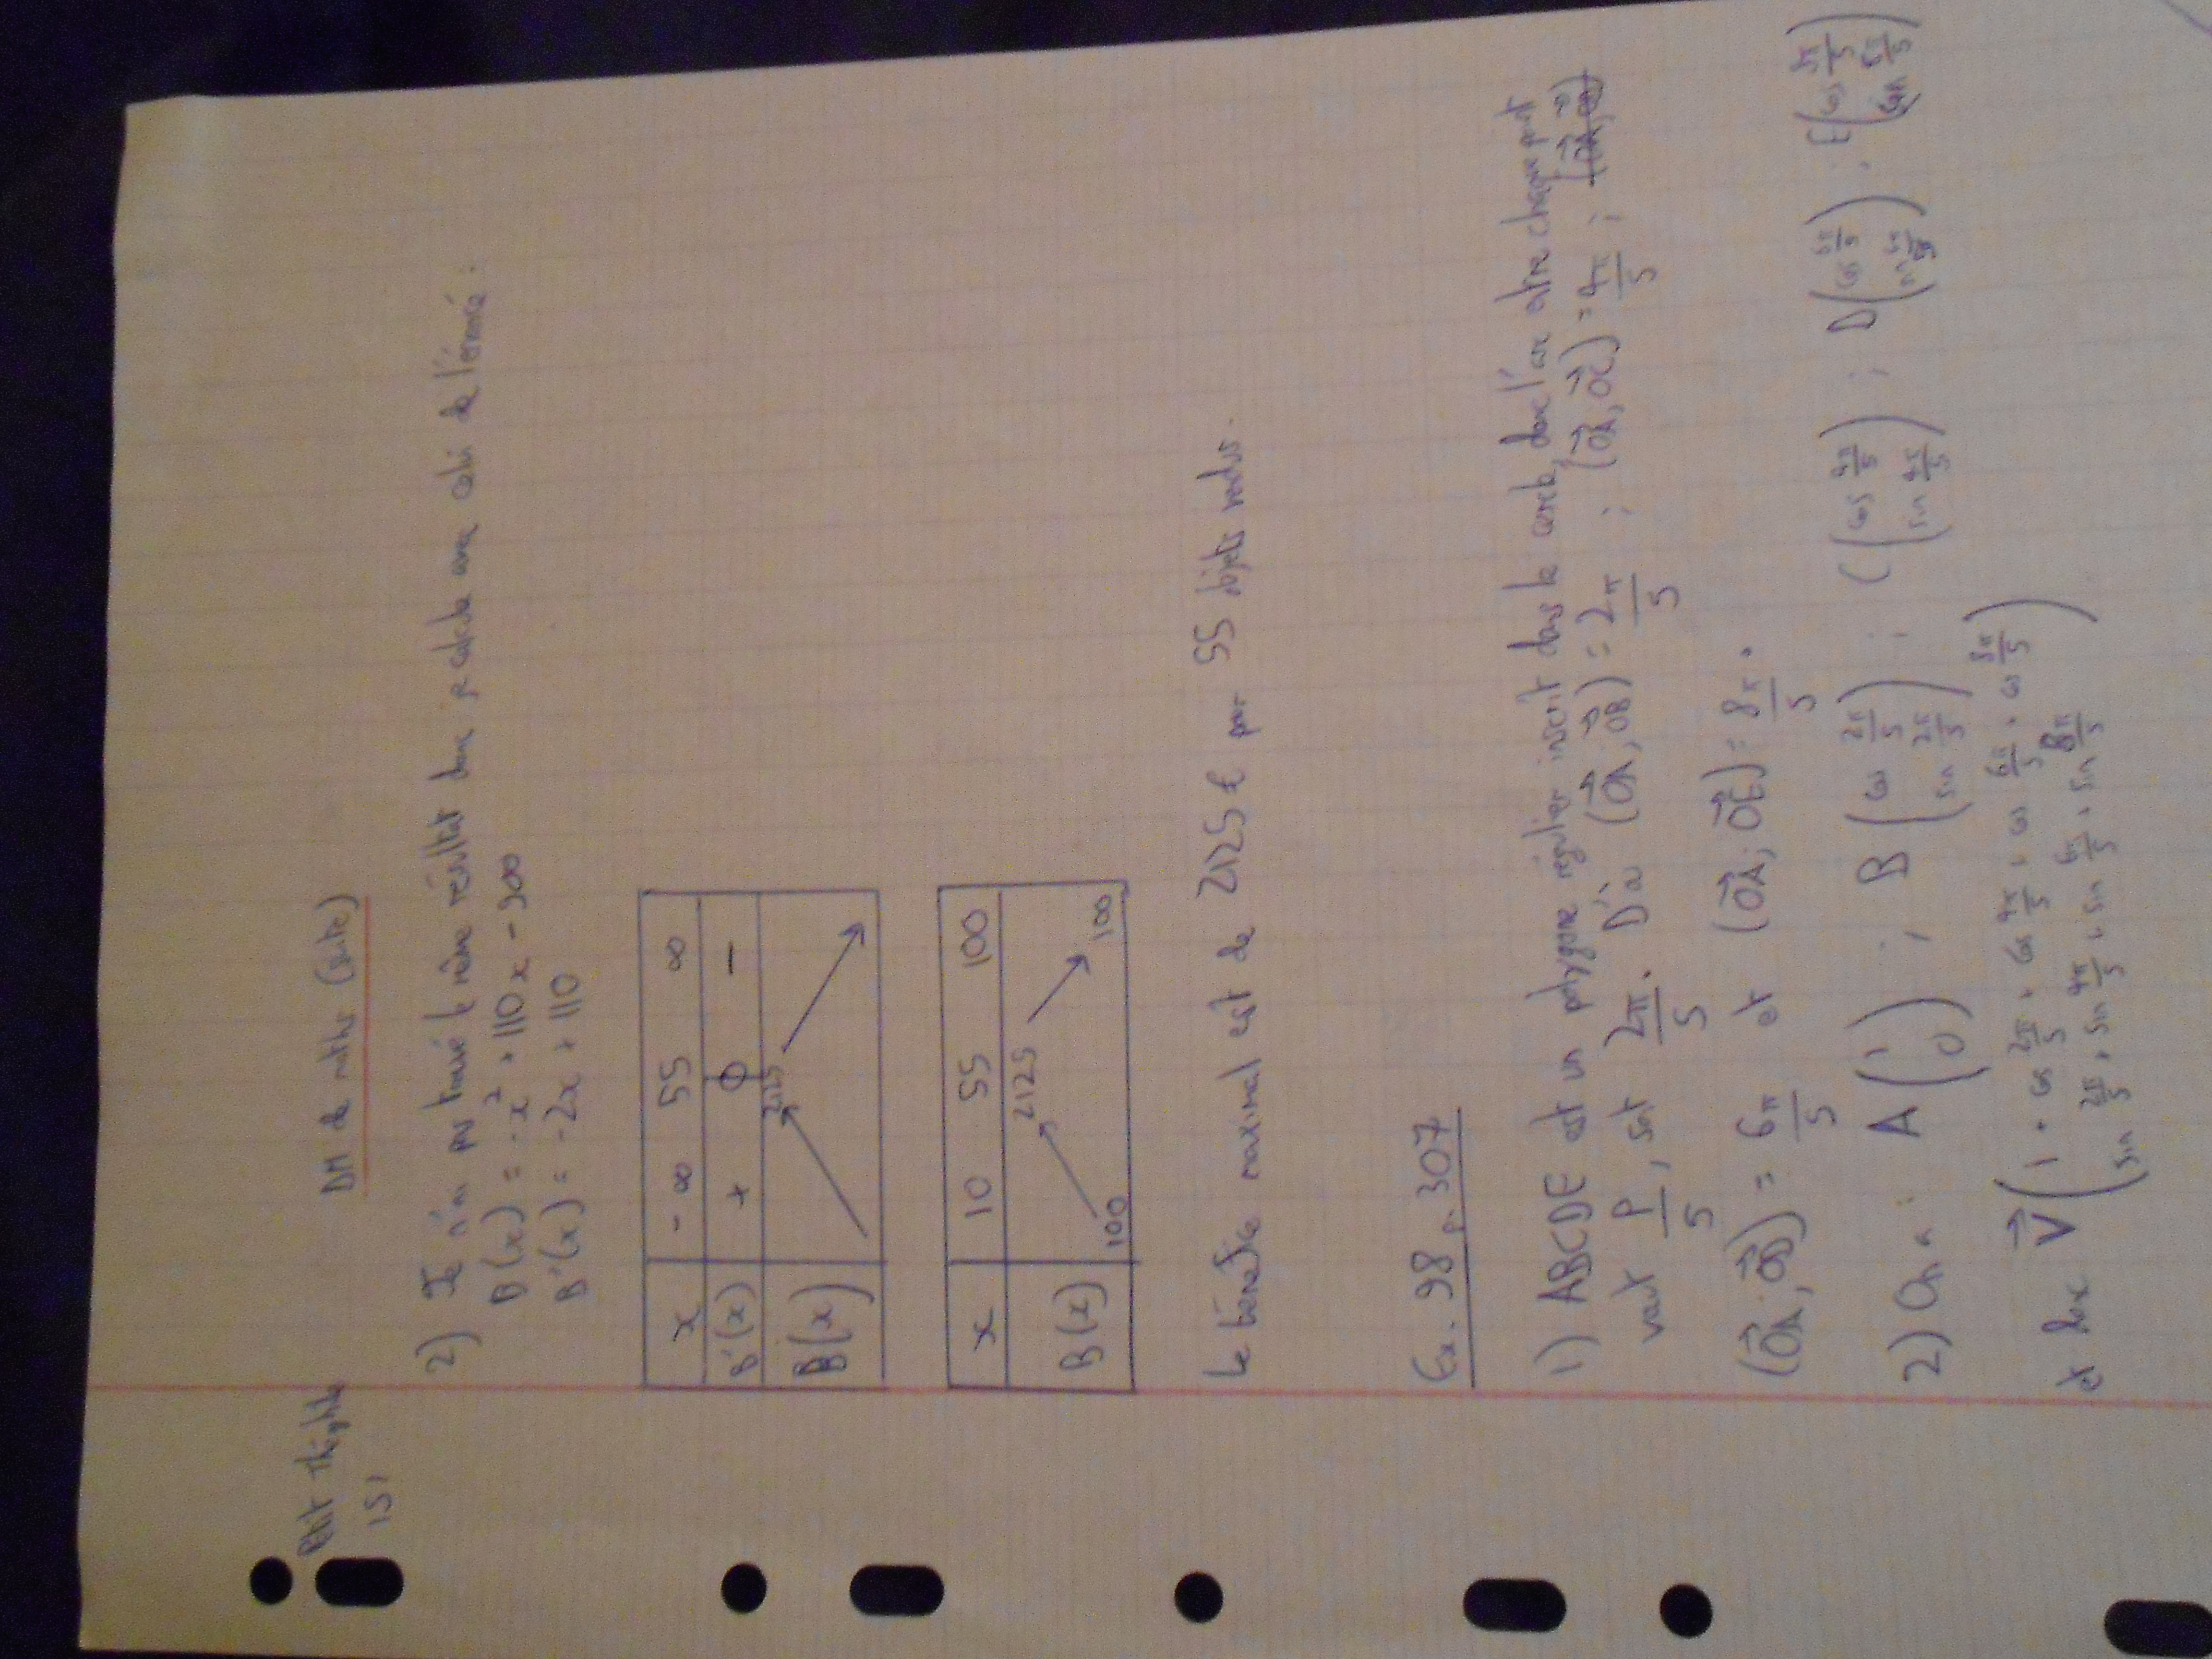 Petit Théophile
1S1
DM de maths (suite)
2) Je n'ai pu trouvé le même résultat donc je calcule avec celui de l'énoncé :
B(x) = -x² + 110x - 900
B'(x) = -2x + 110
x -∞ 55 ∞
B'(x) + 0 -
B(x) 2125
x 10 55 100
B(x) 100 2125 100
Le bénéfice maximal est de 2125 € pour 55 objets vendus.
Ex. 98 p. 307
1) ABCDE est un polygone régulier inscrit dans le cercle, donc l'arc entre chaque point
vaut P/5, soit 2π/5. D'où (OA, OB) = 2π/5 ; (OA, OC) = 4π/5 ;
(OA, OD) = 6π/5 et (OA, OE) = 8π/5.
2) On a : A(1 0) ; B(cos 2π/5 sin 2π/5) ; C(cos 4π/5 sin 4π/5) ; D(cos 6π/5 sin 6π/5) ; E(cos 8π/5 sin 8π/5)
et donc V(1 + cos 2π/5 + cos 4π/5 + cos 6π/5 + cos 8π/5
sin 2π/5 + sin 4π/5 + sin 6π/5 + sin 8π/5)